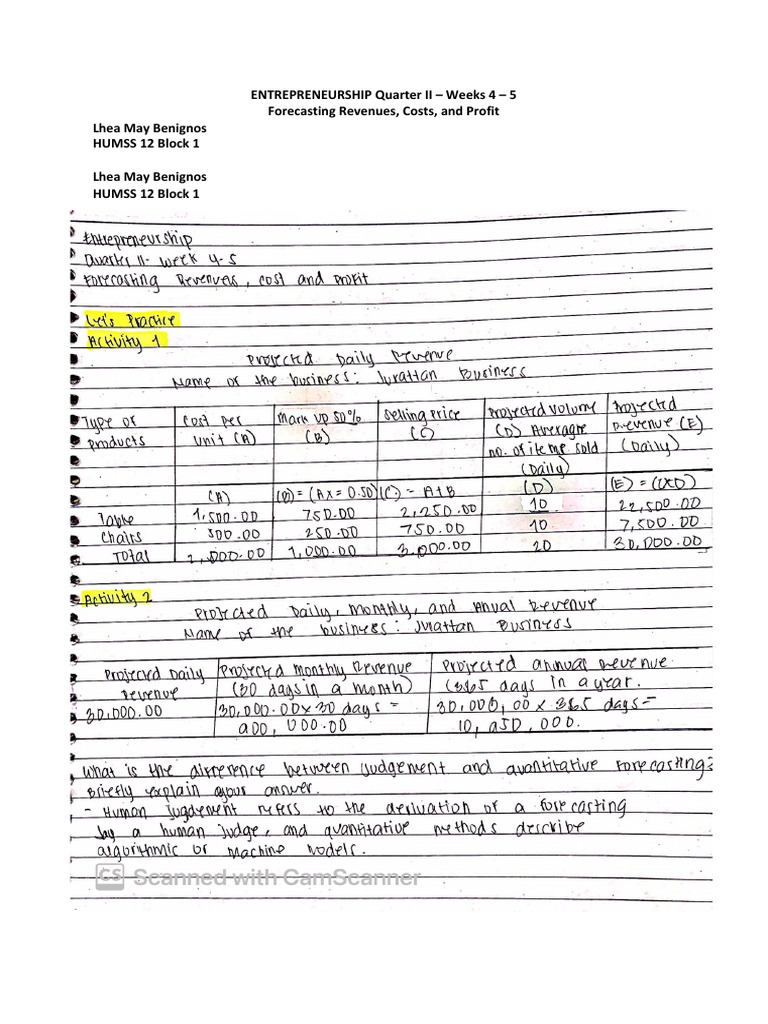 ENTREPRENEURSHIP Quarter II – Weeks 4 – 5
Forecasting Revenues, Costs, and Profit
Lhea May Benignos
HUMSS 12 Block 1
Lhea May Benignos
HUMSS 12 Block 1
Entrepreneurship
Quarter II- week 4-5
Forecasting Revenues, cost and profit
Let's Practice
Activity 1
Projected Daily Revenue
Name of the business: Jurattan Business
Type of products | Cost per unit (A) | Mark up 50% (B) | Selling Price (C) | Projected Volume (D) Average no. of items sold (Daily) | Projected Revenue (E) (Daily)
(A) | (B) = (Ax = 0.50) | (C) = A+B | (D) | (E) = (CxD)
Table | 1,500.00 | 750.00 | 2,250.00 | 10 | 22,500.00
Chairs | 500.00 | 250.00 | 750.00 | 10 | 7,500.00
Total | 2,000.00 | 1,000.00 | 3,000.00 | 20 | 30,000.00
Activity 2
Projected Daily, Monthly, and Anual Revenue
Name of the business: Jurattan Business
Projected Daily Revenue | Projected Monthly Revenue (30 days in a month) | Projected annual revenue (365 days in a year.
30,000.00 | 30,000.00 x 30 days = | 30,000,00 x 365 days =
900,000.00 | 10,950,000.
What is the difference between judgement and quantitative forecasting?
Briefly explain your answer.
- Human jugdement refers to the derivation of a forecasting
by a human judge, and quantitative methods describe
algorithmic or machine models.
CS Scanned with CamScanner